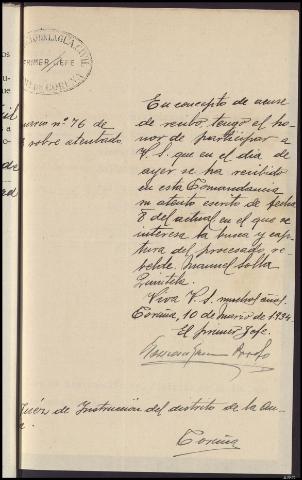 GUARDIA CIVIL
PRIMER JEFE
CORUÑA
nº 76 de
sobre atentado
En concepto de acuse
de recibo, tengo el ho-
nor de participar a
V.S. que en el dia de
ayer se ha recibido
en esta Comandancia
su atento escrito de fecha
8 del actual en el que se
interesa la busca y cap-
tura del procesado re-
belde, Manuel
Quintela.
Viva V.S. muchos años.
Coruña, 10 de Marzo de 1934.
El primer Jefe.
Juez de Instruccion del distrito de la Au-
Coruña